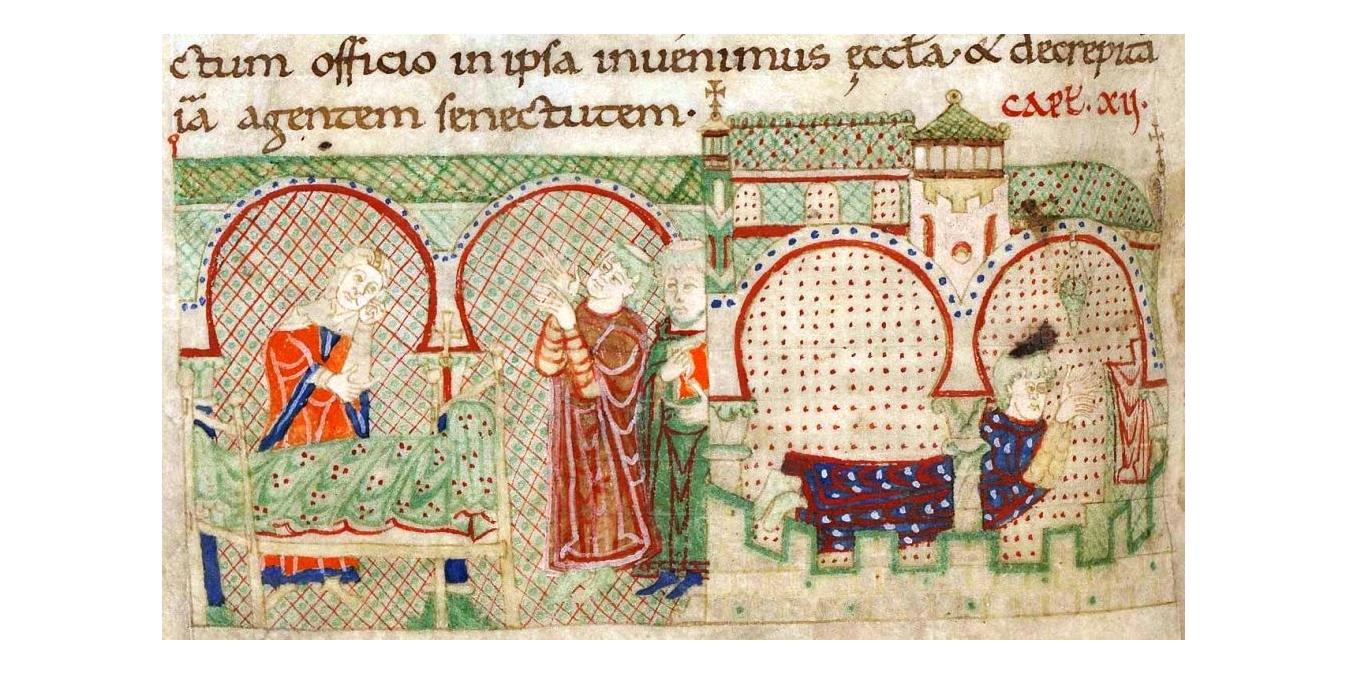 ctum officio in ipsa invenimus ęccła· & decrepita
iā agentem senectutem·
CAPŁ· XII·